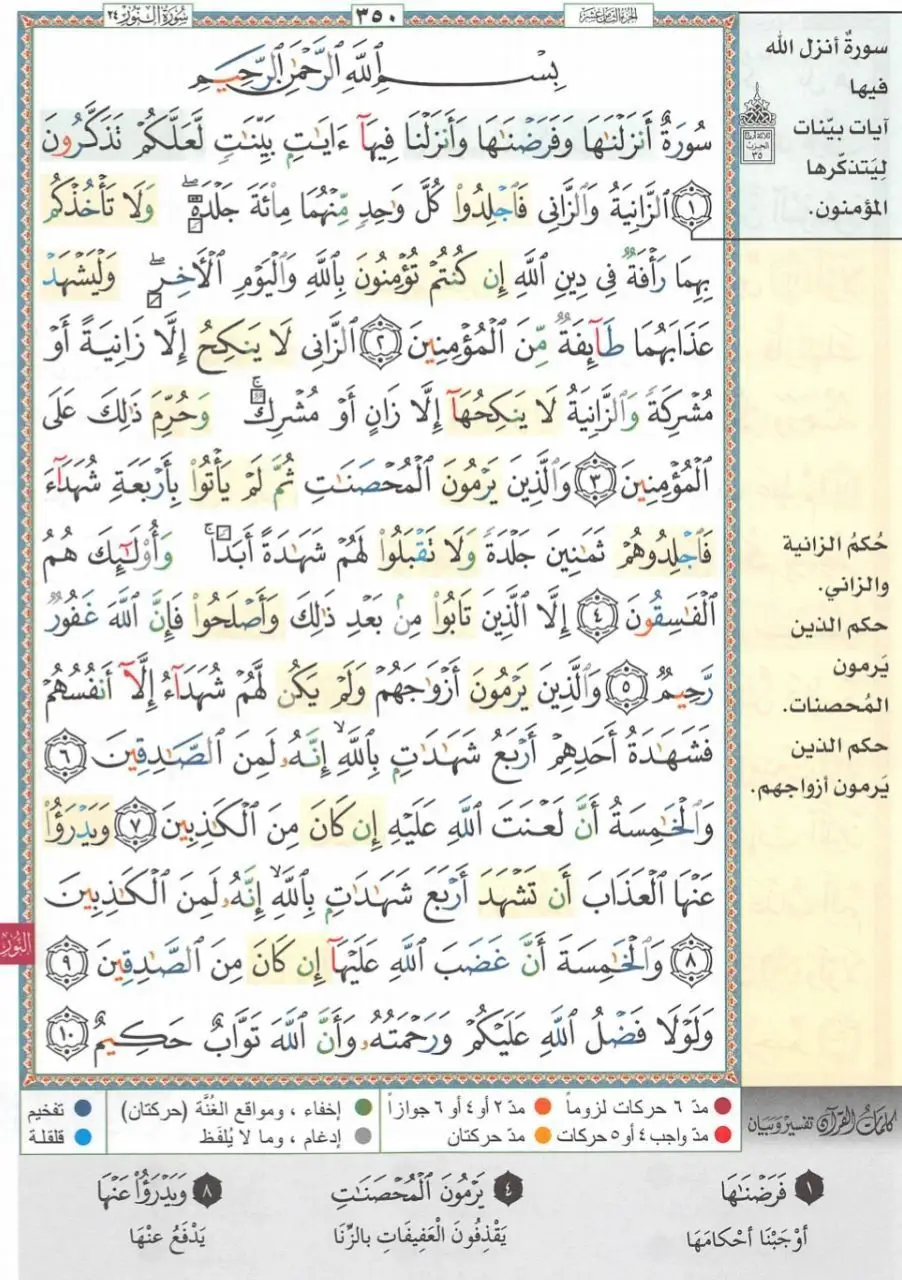 سُورَةُ النُّورِ ٢٤
٣٥٠
الجزء الثامن عشر
بِسْمِ ٱللَّهِ ٱلرَّحْمَٰنِ ٱلرَّحِيمِ
سُورَةٌ أَنزَلْنَٰهَا وَفَرَضْنَٰهَا وَأَنزَلْنَا فِيهَآ ءَايَٰتٍۭ بَيِّنَٰتٍ لَّعَلَّكُمْ تَذَكَّرُونَ
١ ٱلزَّانِيَةُ وَٱلزَّانِى فَٱجْلِدُوا۟ كُلَّ وَٰحِدٍ مِّنْهُمَا مِا۟ئَةَ جَلْدَةٍ ۖ وَلَا تَأْخُذْكُم
بِهِمَا رَأْفَةٌ فِى دِينِ ٱللَّهِ إِن كُنتُمْ تُؤْمِنُونَ بِٱللَّهِ وَٱلْيَوْمِ ٱلْـَٔاخِرِ ۖ وَلْيَشْهَدْ
عَذَابَهُمَا طَآئِفَةٌ مِّنَ ٱلْمُؤْمِنِينَ ٢ ٱلزَّانِى لَا يَنكِحُ إِلَّا زَانِيَةً أَوْ
مُشْرِكَةً وَٱلزَّانِيَةُ لَا يَنكِحُهَآ إِلَّا زَانٍ أَوْ مُشْرِكٌ ۚ وَحُرِّمَ ذَٰلِكَ عَلَى
ٱلْمُؤْمِنِينَ ٣ وَٱلَّذِينَ يَرْمُونَ ٱلْمُحْصَنَٰتِ ثُمَّ لَمْ يَأْتُوا۟ بِأَرْبَعَةِ شُهَدَآءَ
فَٱجْلِدُوهُمْ ثَمَٰنِينَ جَلْدَةً وَلَا تَقْبَلُوا۟ لَهُمْ شَهَٰدَةً أَبَدًا ۚ وَأُو۟لَٰٓئِكَ هُمُ
ٱلْفَٰسِقُونَ ٤ إِلَّا ٱلَّذِينَ تَابُوا۟ مِنۢ بَعْدِ ذَٰلِكَ وَأَصْلَحُوا۟ فَإِنَّ ٱللَّهَ غَفُورٌ
رَّحِيمٌ ٥ وَٱلَّذِينَ يَرْمُونَ أَزْوَٰجَهُمْ وَلَمْ يَكُن لَّهُمْ شُهَدَآءُ إِلَّآ أَنفُسُهُمْ
فَشَهَٰدَةُ أَحَدِهِمْ أَرْبَعُ شَهَٰدَٰتٍۭ بِٱللَّهِ ۙ إِنَّهُۥ لَمِنَ ٱلصَّٰدِقِينَ ٦
وَٱلْخَٰمِسَةُ أَنَّ لَعْنَتَ ٱللَّهِ عَلَيْهِ إِن كَانَ مِنَ ٱلْكَٰذِبِينَ ٧ وَيَدْرَؤُا۟
عَنْهَا ٱلْعَذَابَ أَن تَشْهَدَ أَرْبَعَ شَهَٰدَٰتٍۭ بِٱللَّهِ ۙ إِنَّهُۥ لَمِنَ ٱلْكَٰذِبِينَ
٨ وَٱلْخَٰمِسَةَ أَنَّ غَضَبَ ٱللَّهِ عَلَيْهَآ إِن كَانَ مِنَ ٱلصَّٰدِقِينَ ٩
وَلَوْلَا فَضْلُ ٱللَّهِ عَلَيْكُمْ وَرَحْمَتُهُۥ وَأَنَّ ٱللَّهَ تَوَّابٌ حَكِيمٌ ١٠
سورةٌ أنزل الله
فيها
آيات بيّنات
لِيَتذكّرها
المؤمنون.
الحزب
٣٥
حُكمُ الزانية
والزاني.
حكم الذين
يَرمون
المُحصنات.
حكم الذين
يَرمون أزواجهم.
النُّور
كلمات القرآن تفسير وبيان
مدّ ٦ حركات لزوماً
مدّ ٢ أو ٤ أو ٦ جوازاً
إخفاء ، ومواقع الغُنَّة (حركتان)
تفخيم
مدّ واجب ٤ أو ٥ حركات
مدّ حركتان
إدغام ، وما لا يُلفَظ
قلقلة
١ فَرَضْنَٰهَا
أوْجَبْنَا أحْكامَهَا
٤ يَرْمُونَ ٱلْمُحْصَنَٰتِ
يَقْذِفُونَ العَفِيفَاتِ بالزِّنَا
٨ وَيَدْرَؤُا۟ عَنْهَا
يَدْفَعُ عنْهَا